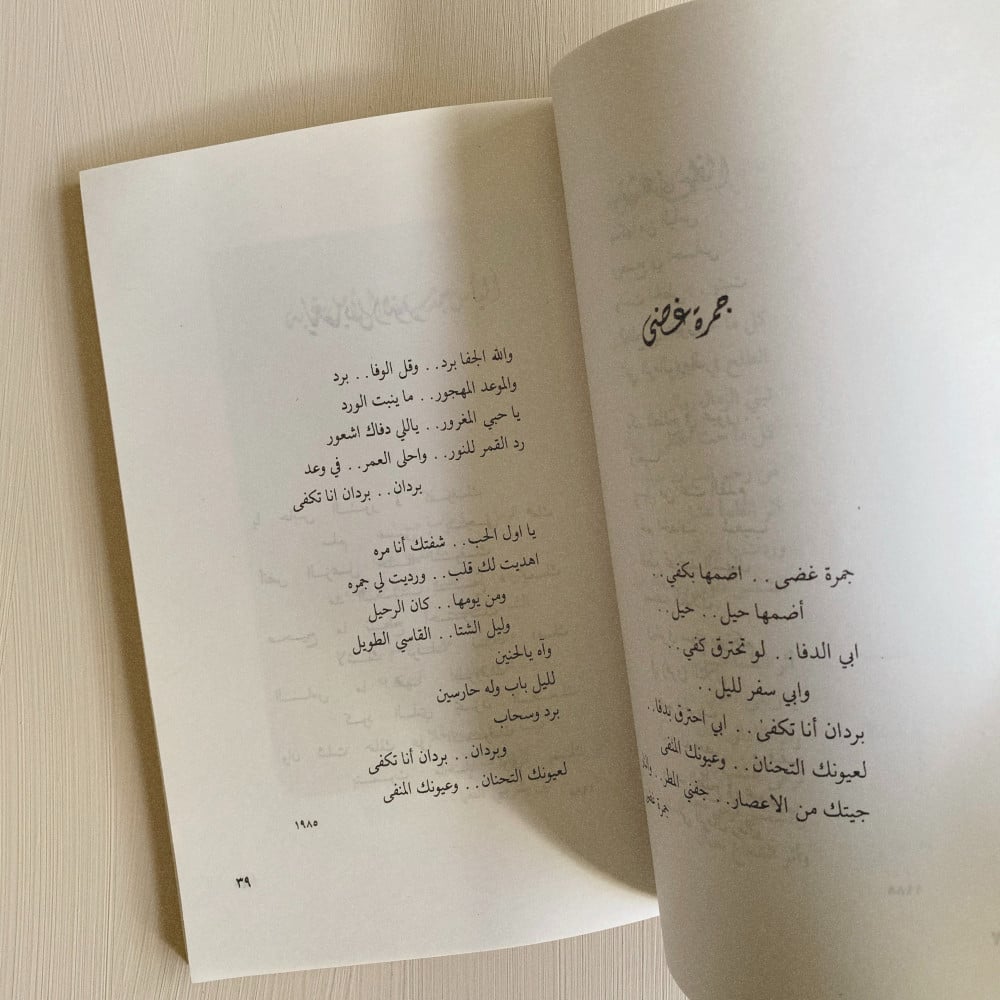 جمرة غضى
جمرة غضى.. اضمها بكفي..
أضمها حيل.. حيل..
ابي الدفا.. لو تحترق كفي..
وابي سفر لليل..
بردان أنا تكفى.. ابي احترق بدفا..
لعيونك التحنان.. وعيونك المنفى
جيتك من الاعصار.. جفني المطر..
جمرة غضى
والله الجفا برد.. وقل الوفا.. برد
والموعد المهجور.. ماينبت الورد
يا حبي المغرور.. ياللي دفاك اشعور
رد القمر للنور.. واحلى العمر.. في وعد
بردان.. بردان انا تكفى
يا اول الحب.. شفتك أنا مره
اهديت لك قلب.. ورديت لي جمره
ومن يومها.. كان الرحيل
وليل الشتا.. القاسي الطويل
وآه يالحنين
لليل باب وله حارسين
برد وسحاب
وبردان.. بردان أنا تكفى
لعيونك التحنان.. وعيونك المنفى
١٩٨٥
٣٩